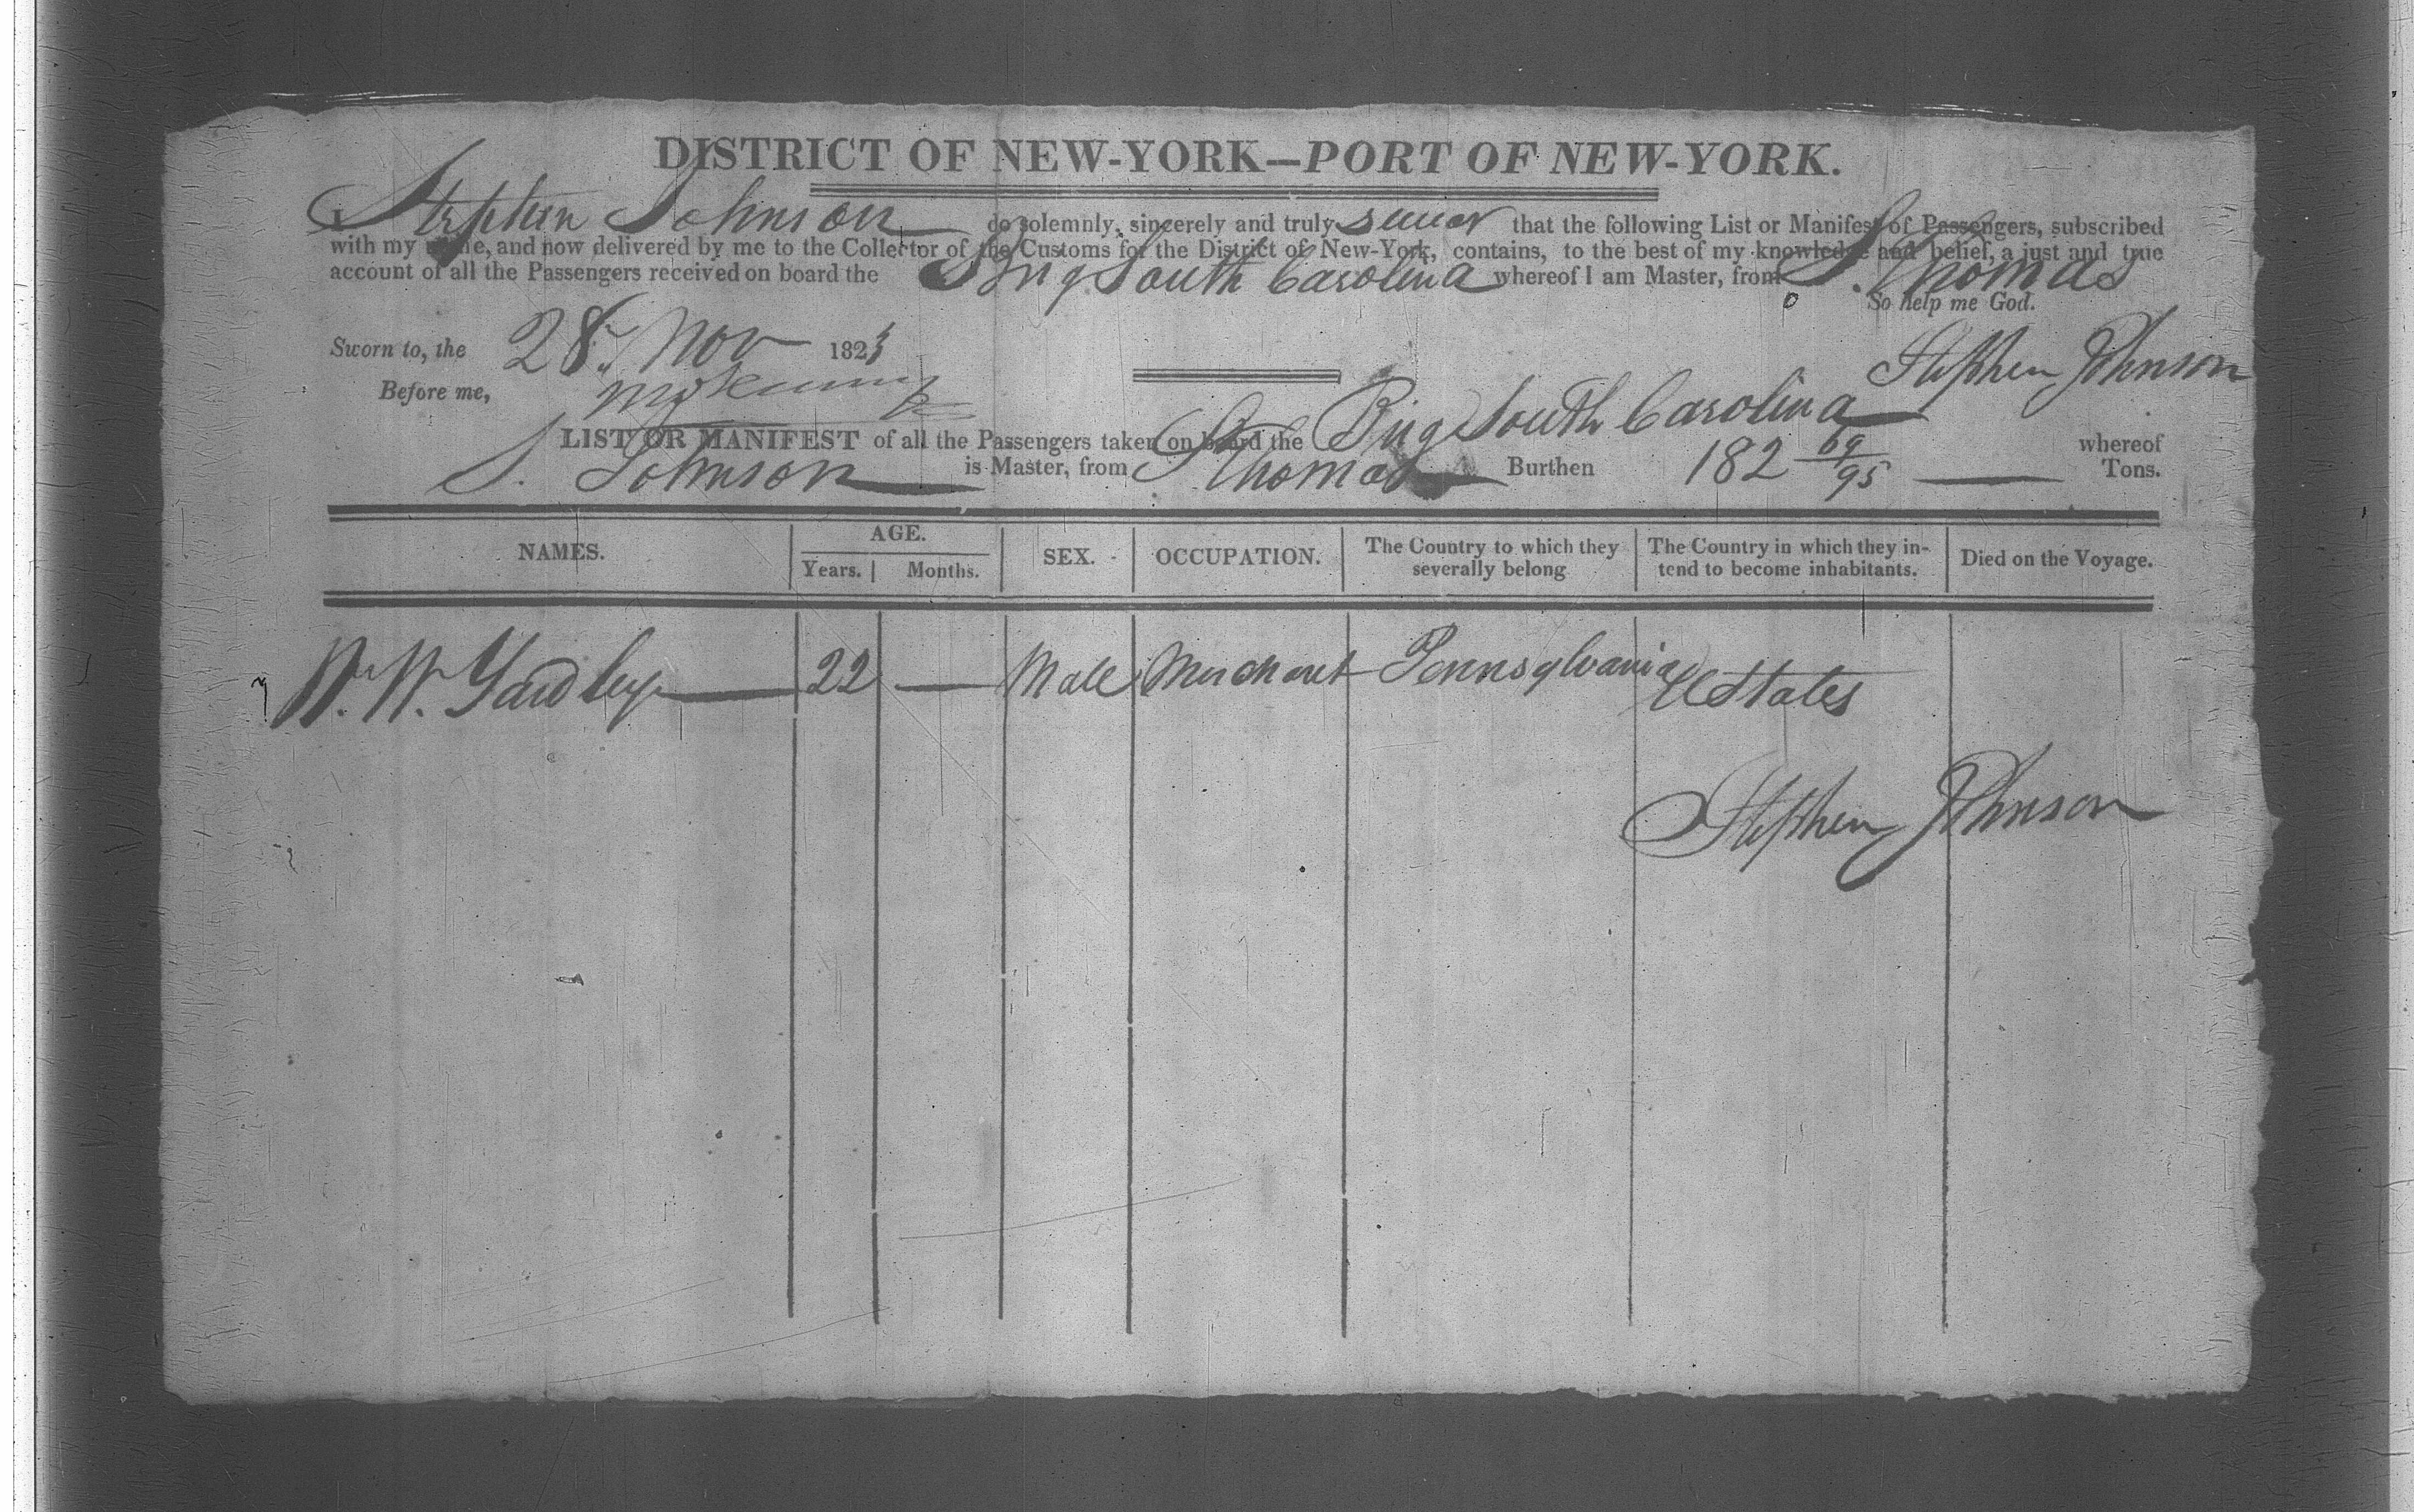 DISTRICT OF NEW-YORK—PORT OF NEW-YORK.
I Stephen Johnson do solemnly, sincerely and truly swear that the following List or Manifest of Passengers, subscribed
with my name, and now delivered by me to the Collector of the Customs for the District of New-York, contains, to the best of my knowledge and belief, a just and true
account of all the Passengers received on board the Brig South Carolina whereof I am Master, from S. Thomas
So help me God.
Sworn to, the 28 Nov 1823
Stephen Johnson
Before me,
LIST OR MANIFEST of all the Passengers taken on board the Brig South Carolina whereof
S. Johnson is Master, from S Thomas Burthen 182 69/95 Tons.
NAMES. AGE. SEX. OCCUPATION. The Country to which they severally belong The Country in which they intend to become inhabitants. Died on the Voyage.
Years. Months.
W. W. Yardley 22 — Male Merchant Pennsylvania U States
Stephen Johnson